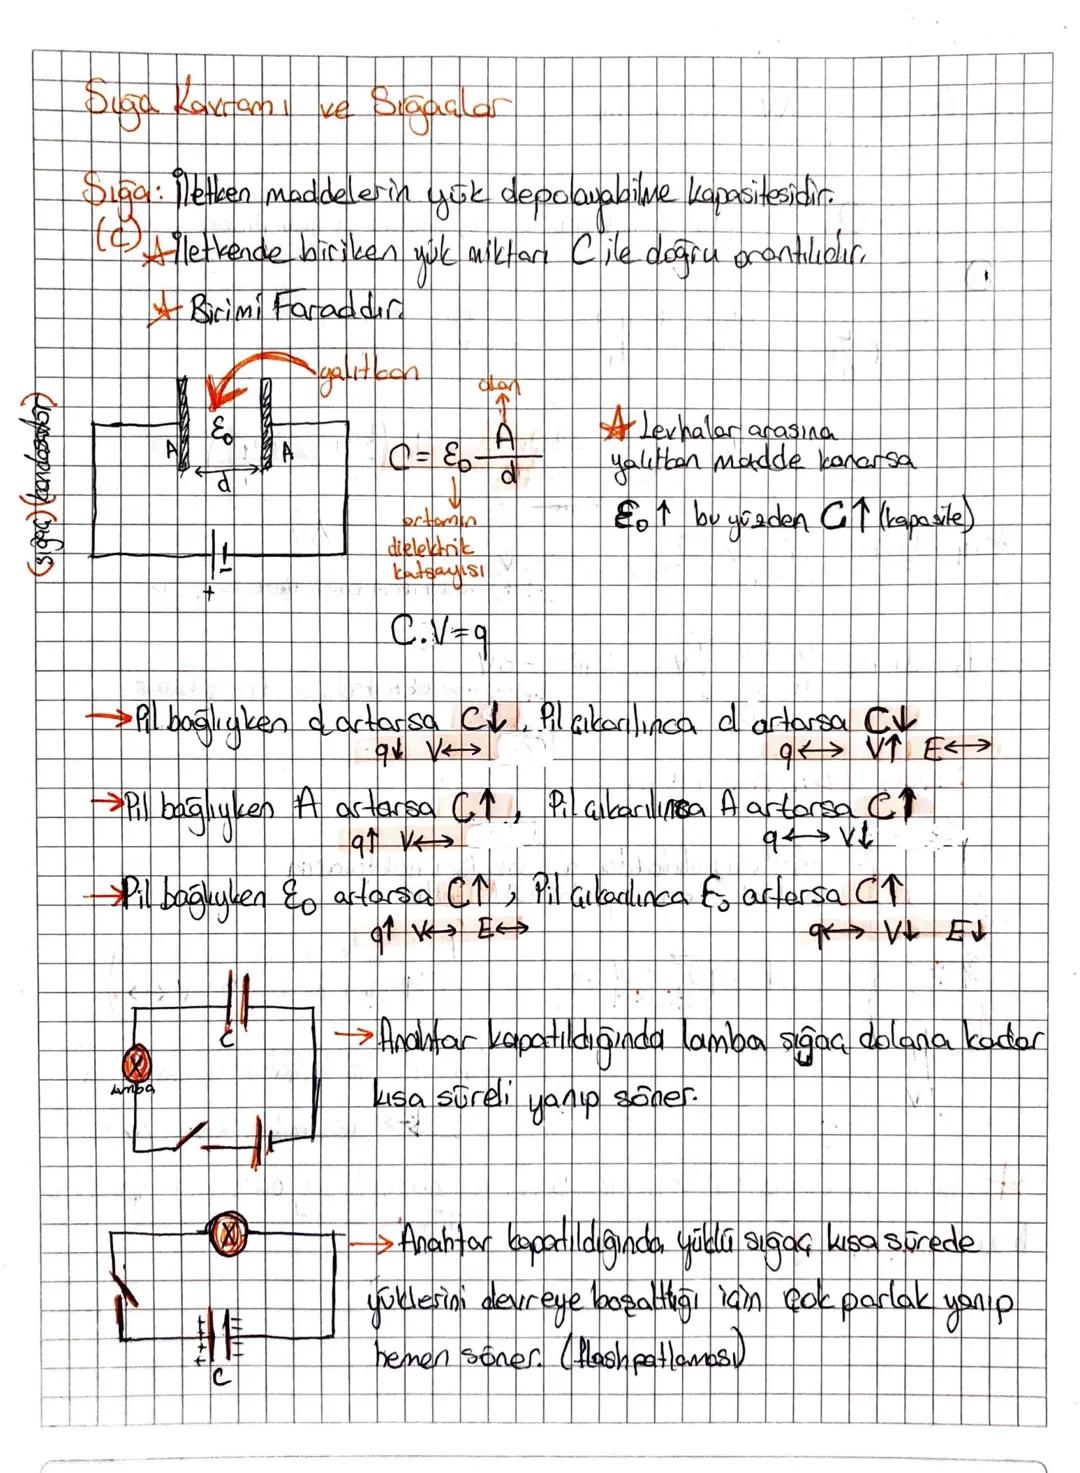 Sığa Kavramı ve Sığaçlar
Sığa: İletken maddelerin yük depolayabilme kapasitesidir.
(C)
☆ İletkende biriken yük miktarı C ile doğru orantılıdır.
☆ Birimi Faraddır.
yalıtkan
ε₀
A
A
d
+
-
(sığaç) (kondansatör)
alan
C = ε₀ A/d
ortamın
dielektrik
katsayısı
☆ Levhalar arasına
yalıtkan madde konarsa
ε₀ ↑ bu yüzden C↑ (kapasite)
C.V=q
→ Pil bağlıyken d artarsa C↓, Pil çıkarılınca d artarsa C↓
q↓ V↔ q↔ V↑ E↔
→ Pil bağlıyken A artarsa C↑, Pil çıkarılınca A artarsa C↑
q↑ V↔ q↔ V↓
→ Pil bağlıyken ε₀ artarsa C↑, Pil çıkarılınca ε₀ artarsa C↑
q↑ V↔ E↔ q↔ V↓ E↓
C
lamba
→ Anahtar kapatıldığında lamba sığaç dolana kadar
kısa süreli yanıp söner.
→ Anahtar kapatıldığında, yüklü sığaç kısa sürede
yüklerini devreye boşalttığı için çok parlak yanıp
hemen söner. (flash patlaması)
C